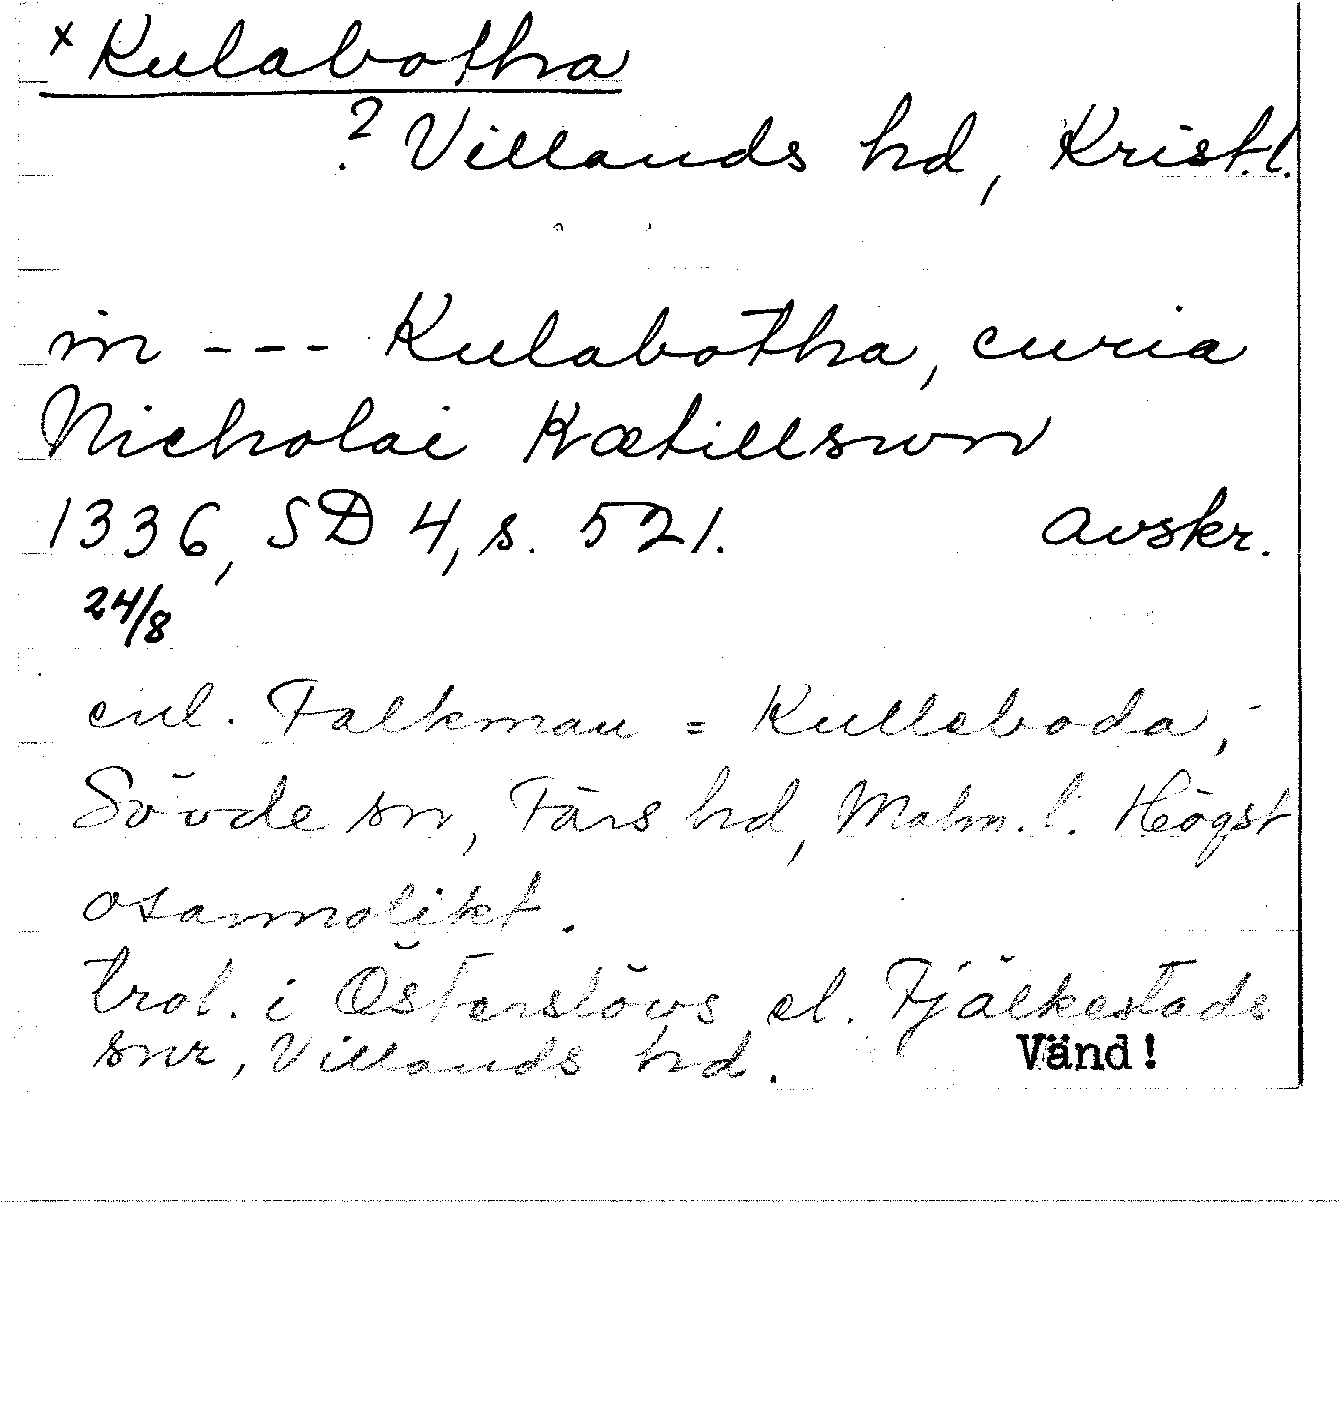 x Kulabotha
? Villands hd, Krist.l.
in --- Kulabotha, curia
Nicholai Kætillswn
1336, SD 4, s. 521. avskr.
24/8
enl. Falkman = Kulleboda,
Sövde sn, Färs hd, Malm.l. Högst
osannolikt.
trol. i Österslövs el. Fjälkestads
snr, Villands hd. Vänd!